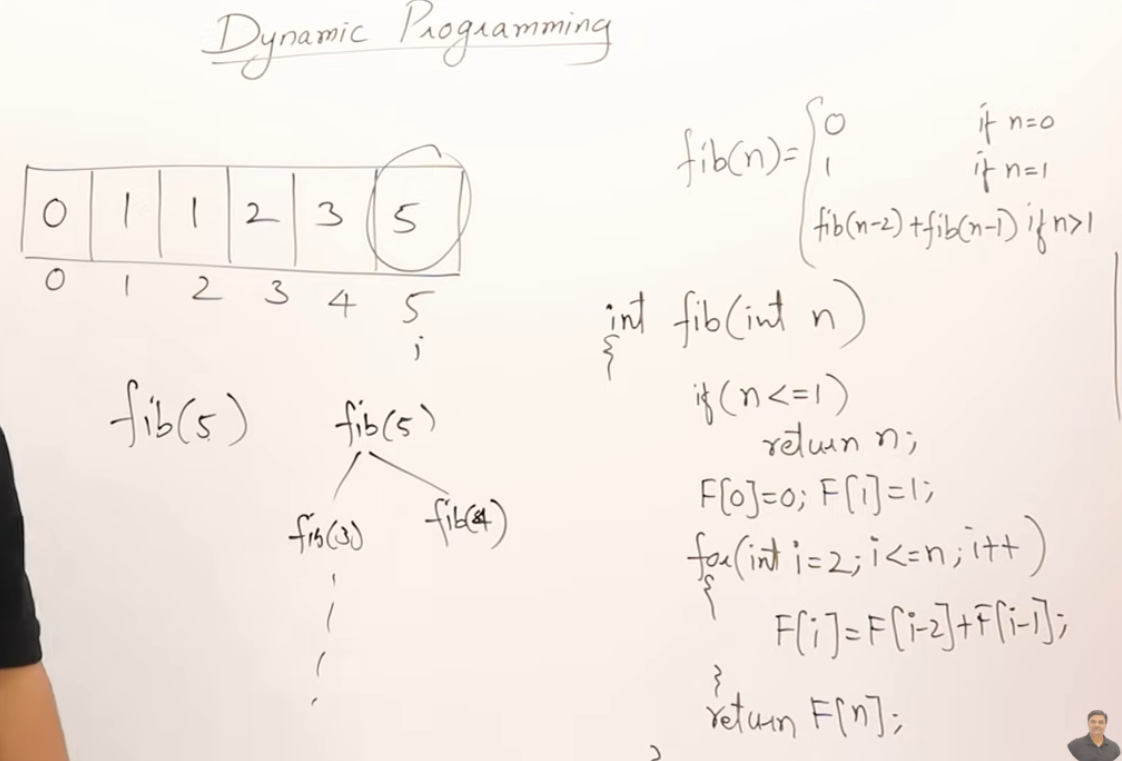 Dynamic Programming
0 1 1 2 3 5
0 1 2 3 4 5
i
fib(5)
fib(5)
fib(3) fib(4)
fib(n)= { 0 if n=0
1 if n=1
fib(n-2)+fib(n-1) if n>1
int fib(int n)
{
if(n<=1)
return n;
F[0]=0; F[1]=1;
for(int i=2; i<=n; i++)
{
F[i]=F[i-2]+F[i-1];
}
return F[n];
}